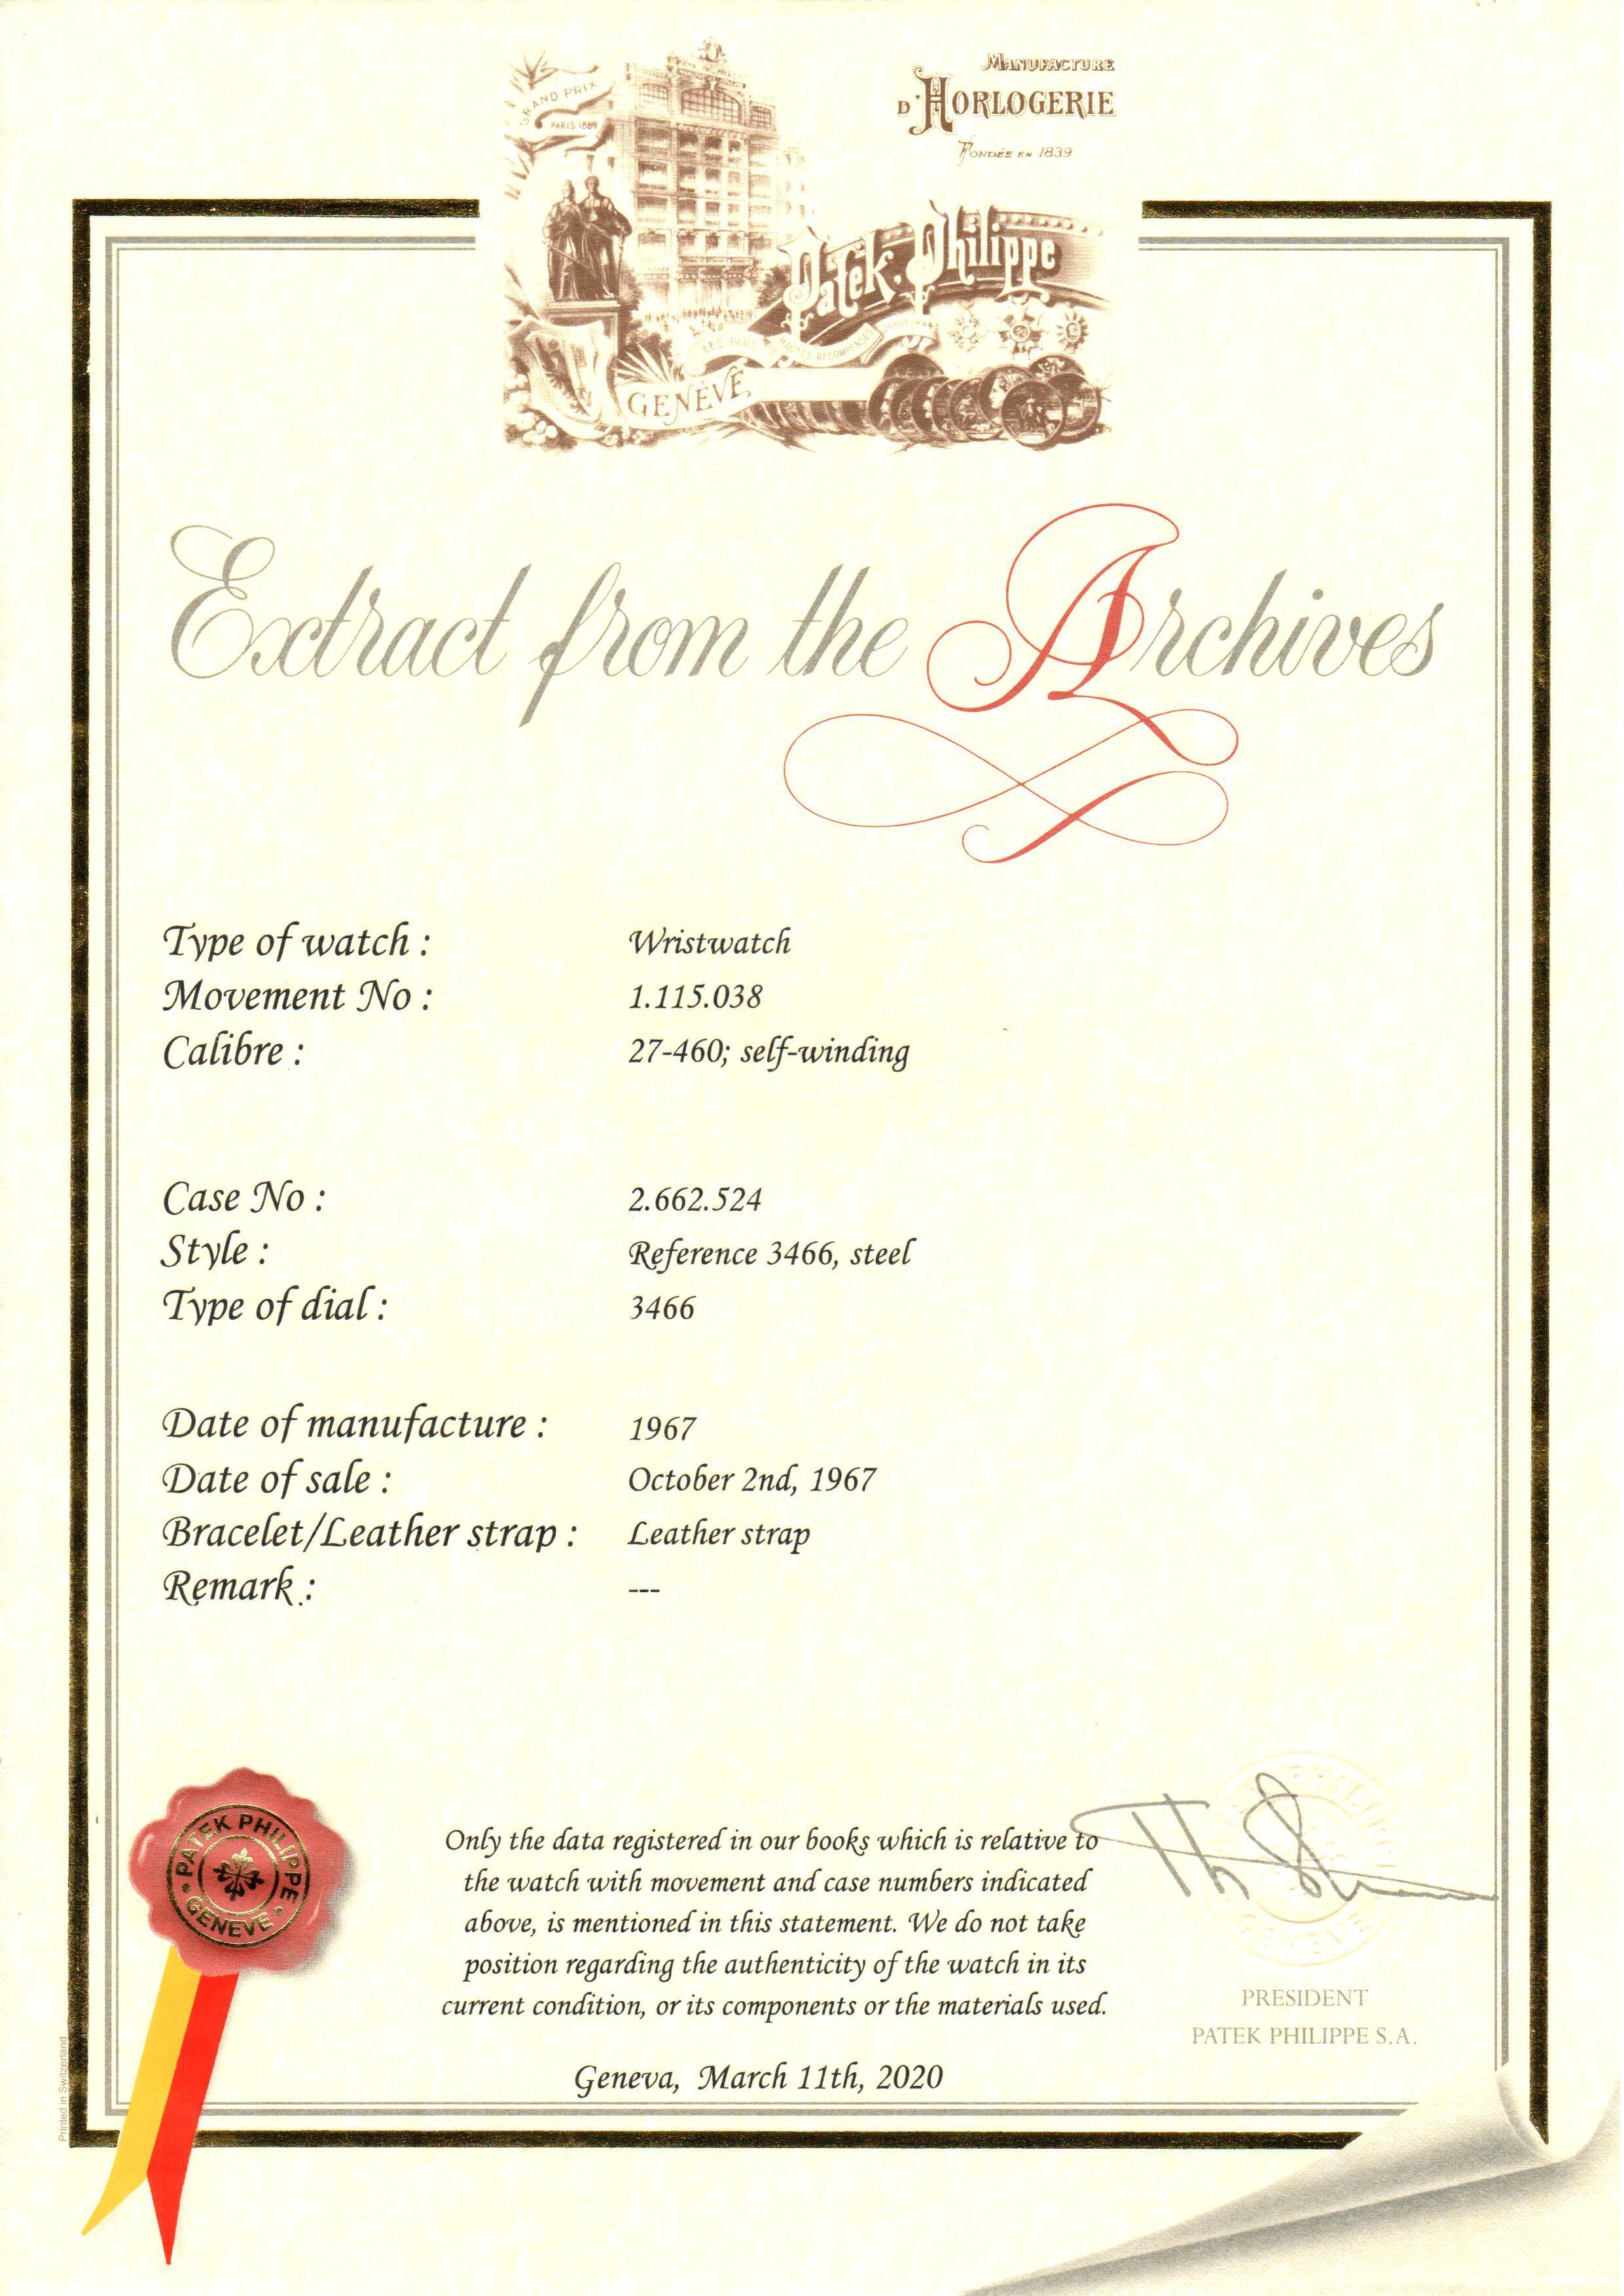 MANUFACTURE
D'HORLOGERIE
FONDÉE EN 1839
GRAND PRIX
PARIS 1889
Patek Philippe
LES PLUS HAUTES RECOMPENSES
GENÈVE
Extract from the Archives
Type of watch : Wristwatch
Movement No : 1.115.038
Calibre : 27-460; self-winding
Case No : 2.662.524
Style : Reference 3466, steel
Type of dial : 3466
Date of manufacture : 1967
Date of sale : October 2nd, 1967
Bracelet/Leather strap : Leather strap
Remark : ---
PATEK PHILIPPE
GENEVE
Only the data registered in our books which is relative to
the watch with movement and case numbers indicated
above, is mentioned in this statement. We do not take
position regarding the authenticity of the watch in its
current condition, or its components or the materials used.
Geneva, March 11th, 2020
PRESIDENT
PATEK PHILIPPE S.A.
Printed in Switzerland